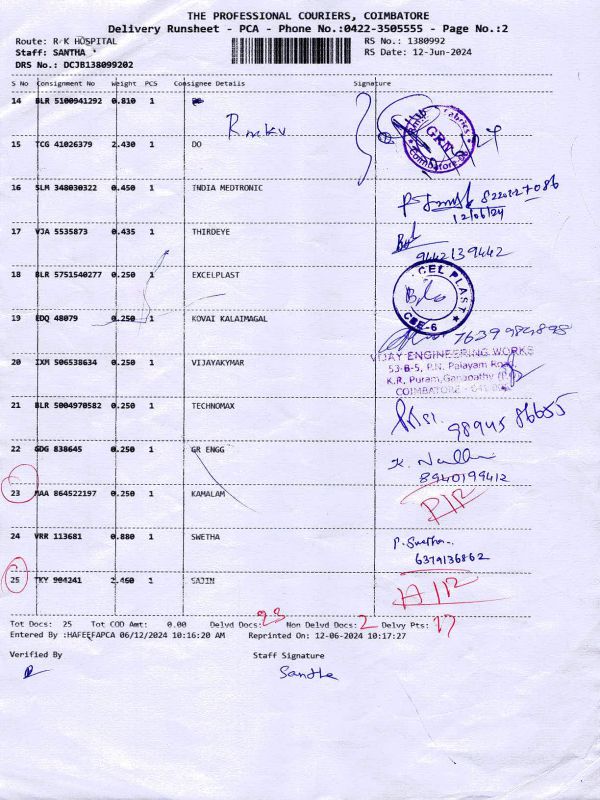 THE PROFESSIONAL COURIERS, COIMBATORE
Delivery Runsheet - PCA - Phone No.:0422-3505555 - Page No.:2
Route: R K HOSPITAL
RS No.: 1380992
Staff: SANTHA
RS Date: 12-Jun-2024
DRS No.: DCJB138099202
S No Consignment No Weight PCS Consignee Details Signature
14 BLR 5100941292 0.810 1
GRN
Coimbatore
15 TCG 41026379 2.430 1 DO
16 SLM 348030322 0.450 1 INDIA MEDTRONIC
12/06/24
17 VJA 5535873 0.435 1 THIRDEYE
9442139442
18 BLR 5751540277 0.250 1 EXCELPLAST
CEL PLAST
CBE-6
19 EDQ 48079 0.250 1 KOVAI KALAIMAGAL
20 IXM 506538634 0.250 1 VIJAYAKYMAR
VIJAY ENGINEERING WORKS
53-B-5, P.N. Palayam Road
K.R. Puram, Ganapathy
COIMBATORE
21 BLR 5004970582 0.250 1 TECHNOMAX
98945 86655
22 GDG 838645 0.250 1 GR ENGG
8940199412
23 MAA 864522197 0.250 1 KAMALAM
24 VRR 113681 0.880 1 SWETHA
P. Swetha
6379136862
25 TKY 904241 2.460 1 SAJIN
Tot Docs: 25 Tot COD Amt: 0.00 Delvd Docs: 23 Non Delvd Docs: 2 Delvy Pts: 17
Entered By :HAFEEFAPCA 06/12/2024 10:16:20 AM Reprinted On: 12-06-2024 10:17:27
Verified By Staff Signature
Santha